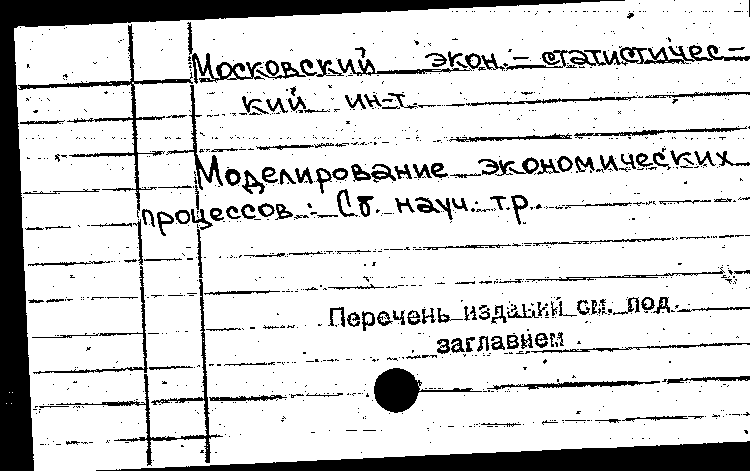 Московский экон.-статистичес-
кий ин-т
Моделирование экономических
процессов: Сб. науч. тр.
Перечень изданий см. под.
заглавием